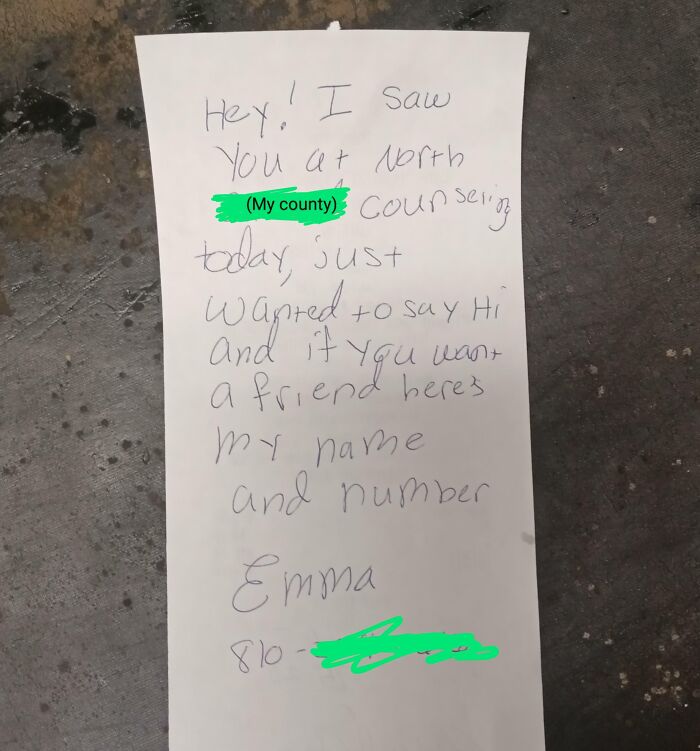 Hey! I saw
You at North
(My county) counseling
today, just
wanted to say Hi
and if you want
a friend here's
my name
and number
Emma
810-